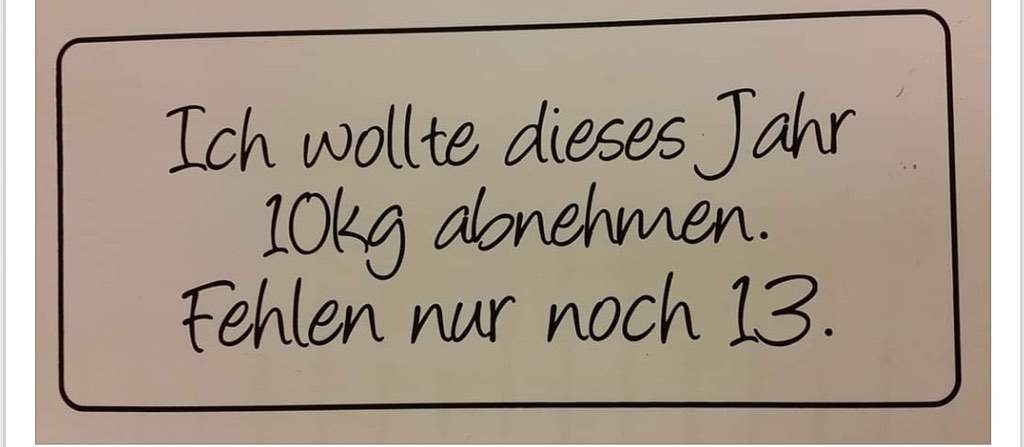 Ich wollte dieses Jahr
10kg abnehmen.
Fehlen nur noch 13.